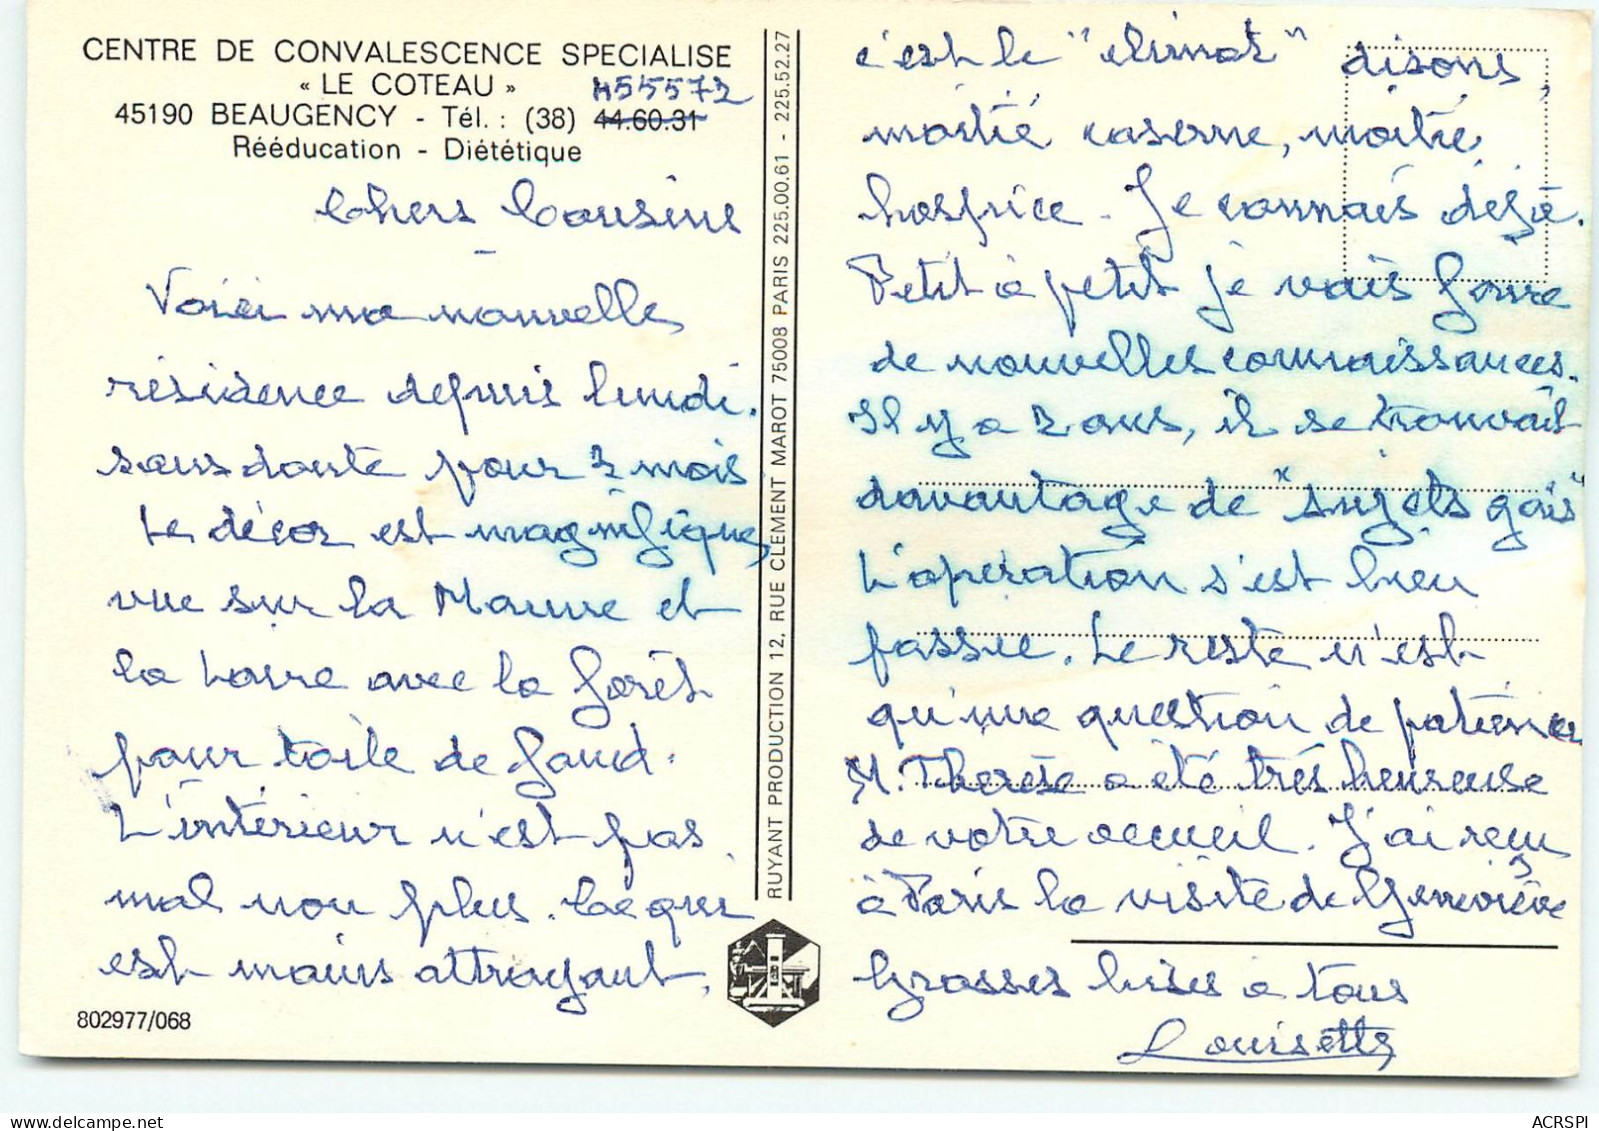 CENTRE DE CONVALESCENCE SPECIALISE
« LE COTEAU »
455572
45190 BEAUGENCY - Tél. : (38) 44.60.31
Rééducation - Diététique
Chers Cousins
Voici ma nouvelle
résidence depuis lundi.
sans doute pour 2 mois
Le décor est magnifique,
vue sur la Mauve et
la Loire avec la forêt
pour toile de fond.
L'intérieur n'est pas
mal non plus. Ce qui
est moins attrayant,
802977/068
RUYANT PRODUCTION 12, RUE CLEMENT MAROT 75008 PARIS 225.00.61 - 225.52.27
c'est le "climat" disons,
moitié caserne, moitié
hospice. Je connais déjà.
Petit à petit je vais faire
de nouvelles connaissances.
Il y a 2 ans, il se trouvait
davantage de "sujets gais"
L'opération s'est bien
passée. Le reste n'est
qu'une question de patience
M. Thérèse a été très heureuse
de votre accueil. J'ai reçu
à Paris la visite de Geneviève
Grosses bises à tous
Louisette
ACRSPI